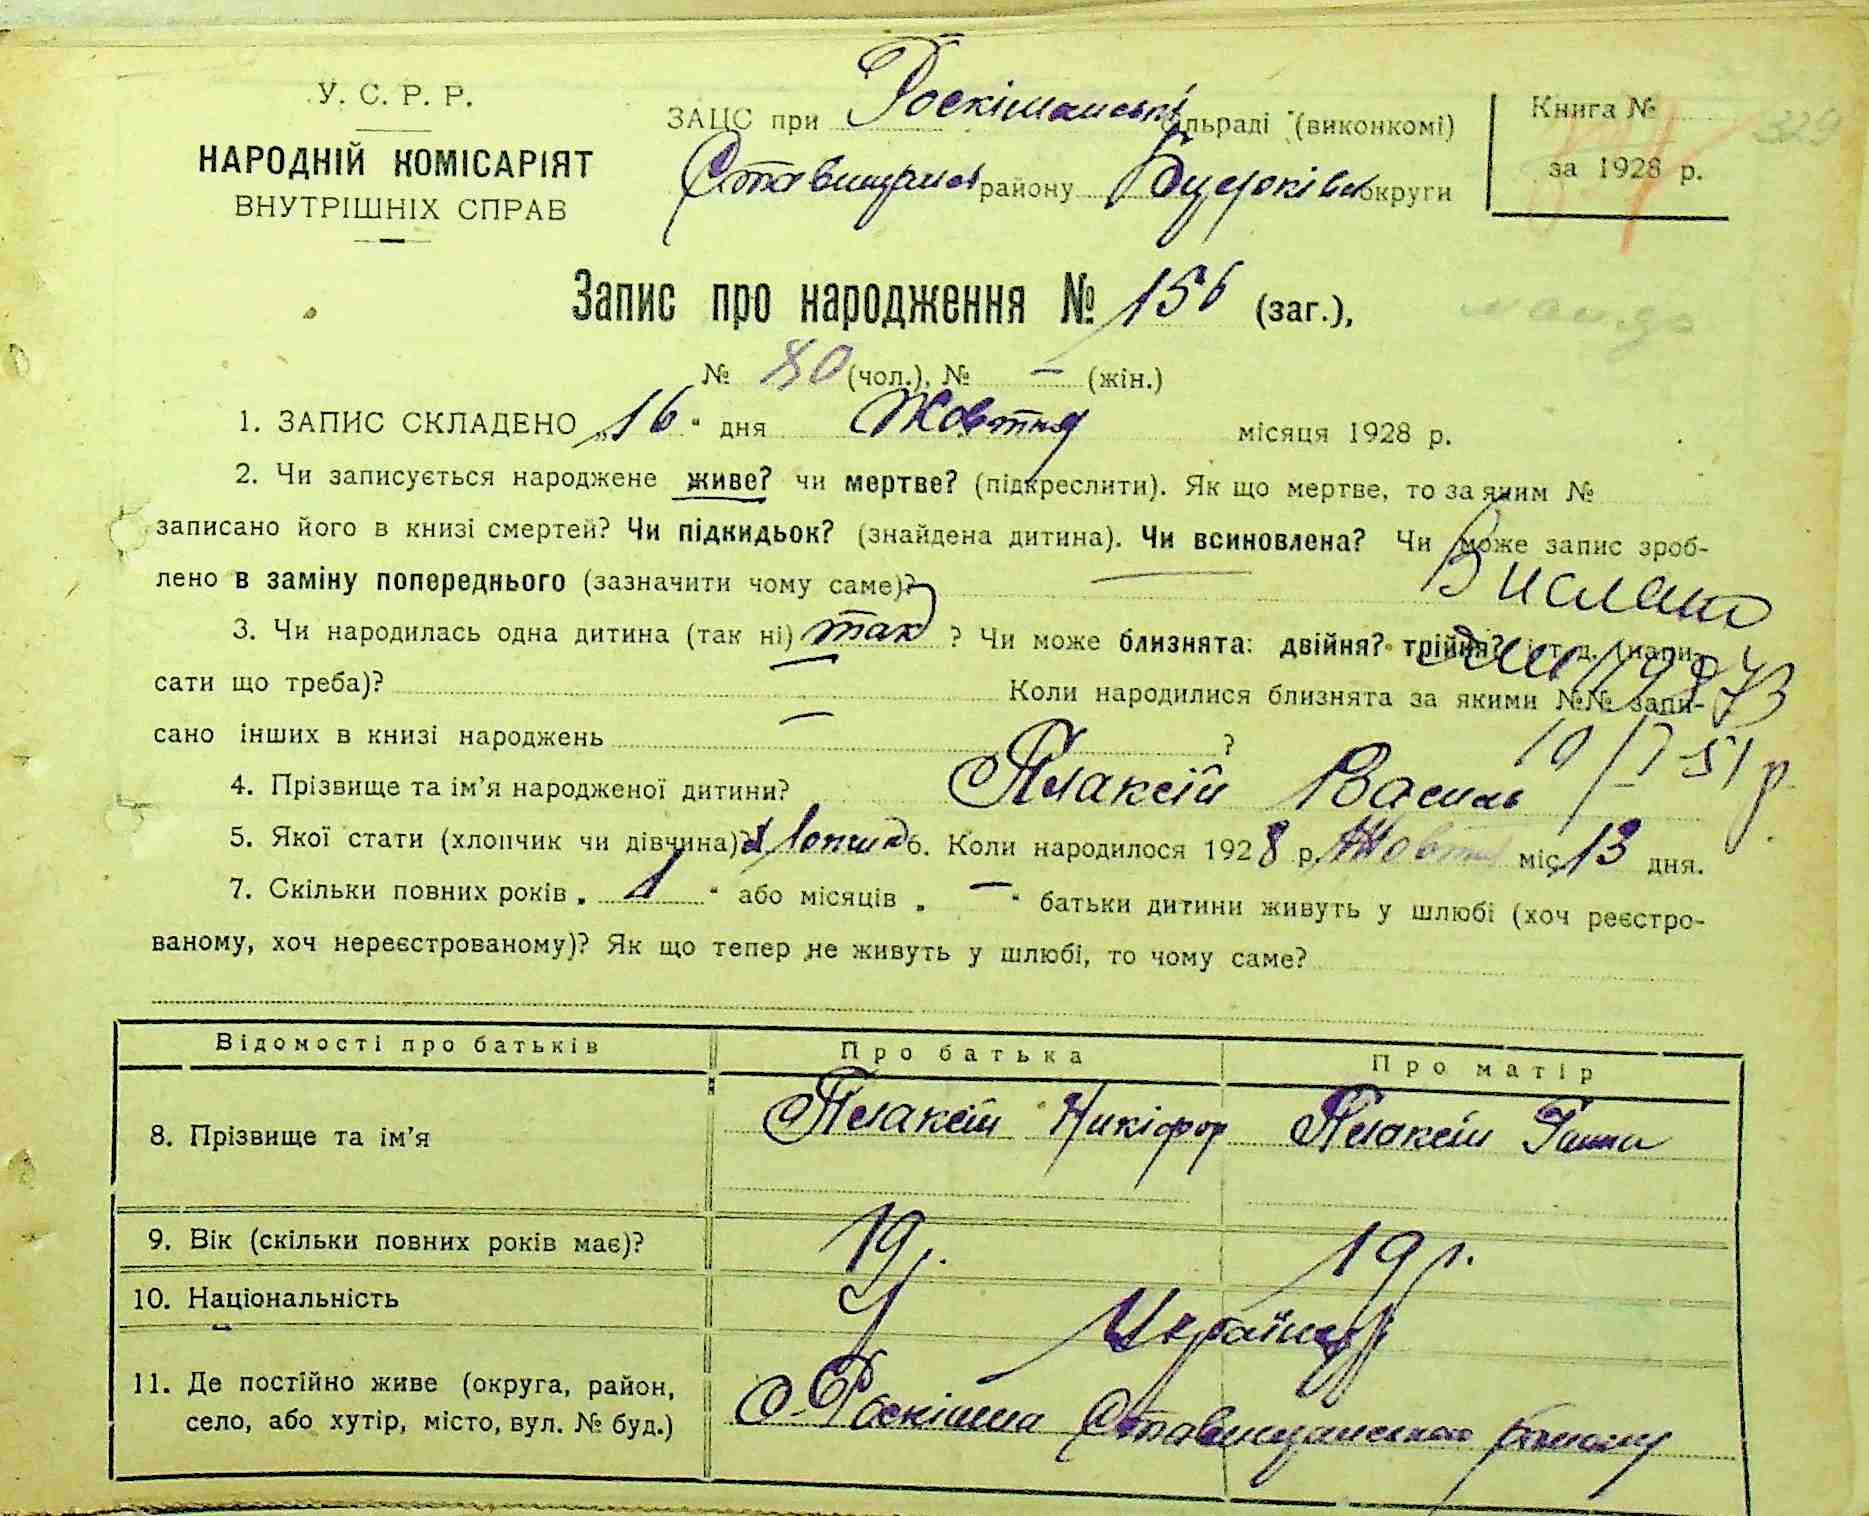 У. С. Р. Р.
НАРОДНІЙ КОМІСАРІЯТ
ВНУТРІШНІХ СПРАВ
ЗАЦС при Роскішанські сільраді (виконкомі)
Ставищанск району Білоцерківськ округи
Книга №
за 1928 р.
Запис про народження № 156 (заг.),
№ 80 (чол.), № — (жін.)
1. ЗАПИС СКЛАДЕНО „16“ дня Жовтня місяця 1928 р.
2. Чи записується народжене живе? чи мертве? (підкреслити). Як що мертве, то за яким №
записано його в книзі смертей? Чи підкидьок? (знайдена дитина). Чи всиновлена? Чи може запис зроб-
лено в заміну попереднього (зазначити чому саме)?
Вислано
3. Чи народилась одна дитина (так ні) так ? Чи може близнята: двійня? трійня? і т. д. (напи-
сати що треба)? — Коли народилися близнята за якими №№ запи-
сано інших в книзі народжень — ?
4. Прізвище та ім'я народженої дитини? Плаксій Василь
5. Якої стати (хлопчик чи дівчина)? Хлопчик 6. Коли народилося 1928 р. Жовтня міс. 13 дня.
7. Скільки повних років „1“ або місяців „—“ батьки дитини живуть у шлюбі (хоч реєстро-
ваному, хоч нереєстрованому)? Як що тепер не живуть у шлюбі, то чому саме?
Відомості про батьків Про батька Про матір
8. Прізвище та ім'я Плаксій Никіфор Плаксій Ганна
9. Вік (скільки повних років має)? 19 р. 19 р.
10. Національність Українці
11. Де постійно живе (округа, район,
село, або хутір, місто, вул. № буд.)
с. Роскішна Ставищанського району